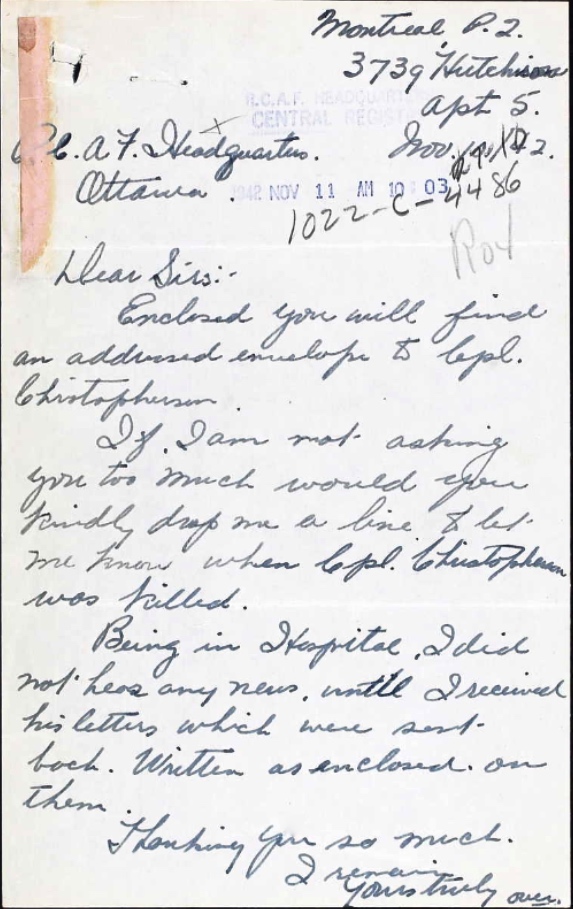 Montreal P.Q.
3739 Hutchison
Apt 5.
R.C.A.F. HEADQUARTERS
CENTRAL REGISTRY
R.C.A.F. Headquarters. Nov.
Ottawa.
1942 NOV 11 AM 10 03
1022-C-4486
Dear Sirs:-
Enclosed you will find
an addressed envelope to Cpl.
Christopherson.
If I am not asking
you too much would you
kindly drop me a line & let
me know when Cpl. Christopherson
was killed.
Being in Hospital, I did
not hear any news, until I received
his letters which were sent
back. Written as enclosed on
them.
Thanking you so much.
I remain
Yours truly over.